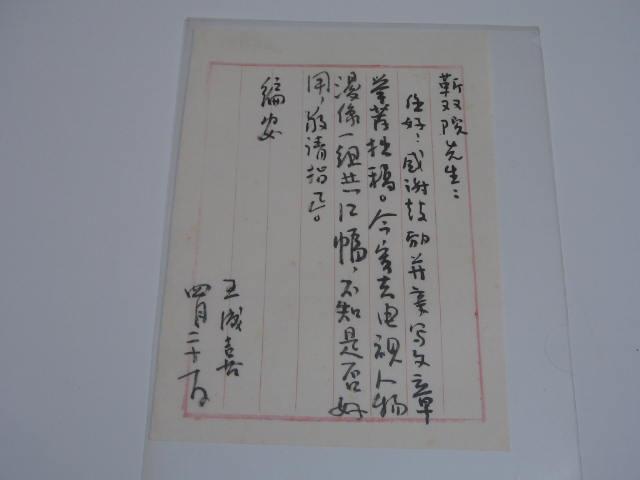 靳双院先生：
您好：感谢鼓励并亲写文章
荐拙稿。今寄去电视人物
漫像一组共12幅，不知是否好
用，敬请指正。
编安
王成喜
四月二十日